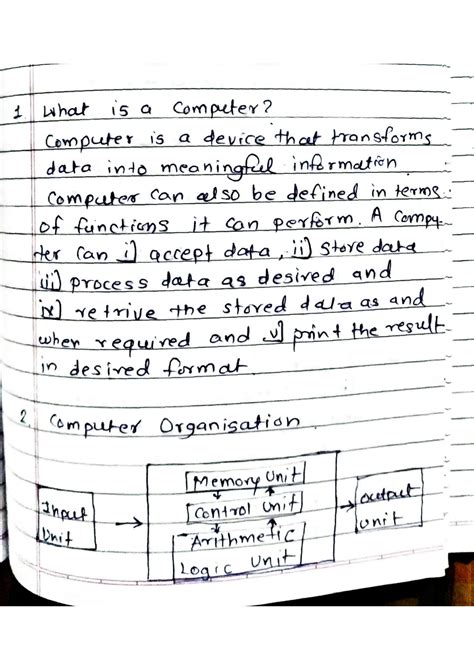 1 What is a Computer?
Computer is a device that transforms
data into meaningful information
Computer can also be defined in terms
of functions it can perform. A compu-
ter can i) accept data, ii) store data
iii) process data as desired and
iv) retrive the stored data as and
when required and v) print the result
in desired format.
2. Computer Organisation
Memory Unit
Input Unit
Control Unit
Output Unit
Arithmetic
Logic Unit